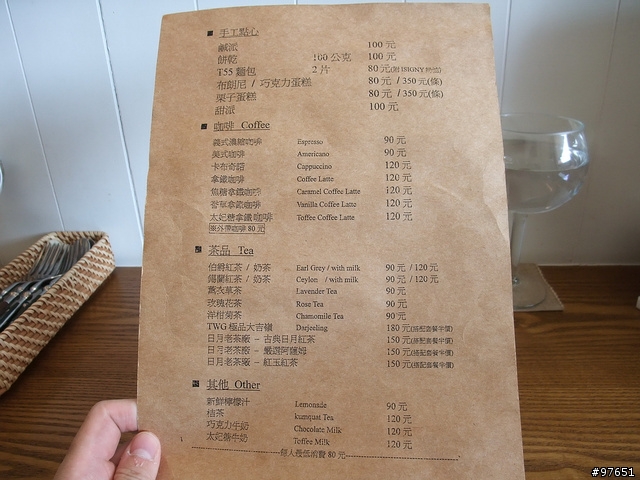 ■ 手工點心
鹹派 100 元
餅乾 100 公克 100 元
T55 麵包 2 片 80 元(附 ISIGNY 奶油)
布朗尼 / 巧克力蛋糕 80 元 / 350 元(條)
栗子蛋糕 80 元 / 350 元(條)
甜派 100 元
■ 咖啡 Coffee
義式濃縮咖啡 Espresso 90 元
美式咖啡 Americano 90 元
卡布奇諾 Cappuccino 120 元
拿鐵咖啡 Coffee Latte 120 元
焦糖拿鐵咖啡 Caramel Coffee Latte 120 元
香草拿鐵咖啡 Vanilla Coffee Latte 120 元
太妃糖拿鐵咖啡 Toffee Coffee Latte 120 元
※外帶咖啡 80 元
■ 茶品 Tea
伯爵紅茶 / 奶茶 Earl Grey / with milk 90 元 / 120 元
錫蘭紅茶 / 奶茶 Ceylon / with milk 90 元 / 120 元
薰衣草茶 Lavender Tea 90 元
玫瑰花茶 Rose Tea 90 元
洋柑菊茶 Chamomile Tea 90 元
TWG 極品大吉嶺 Darjeeling 180 元(搭配套餐半價)
日月老茶廠 – 古典日月紅茶 150 元(搭配套餐半價)
日月老茶廠 – 嚴選阿薩姆 150 元(搭配套餐半價)
日月老茶廠 – 紅玉紅茶 150 元(搭配套餐半價)
■ 其他 Other
新鮮檸檬汁 Lemonade 90 元
桔茶 kumquat Tea 120 元
巧克力牛奶 Chocolate Milk 120 元
太妃糖牛奶 Toffee Milk 120 元
每人最低消費 80 元
#97651